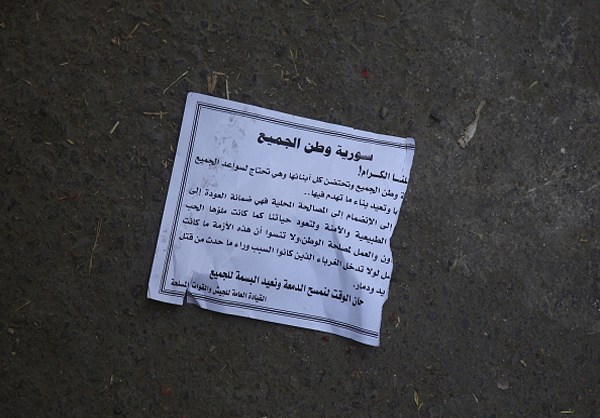 سورية وطن الجميع
لنا الكرام!
ة وطن الجميع وتحتضن كل أبنائها وهي تحتاج لسواعد الجميع
ا وتعيد بناء ما تهدم فيها..
إلى الانضمام إلى المصالحة المحلية فهي ضمانة العودة إلى
الطبيعية والآمنة ولتعود حياتنا كما كانت ملؤها الحب
ون والعمل لمصلحة الوطن،ولا تنسوا أن هذه الأزمة ما كانت
مل لولا تدخل الغرباء الذين كانوا السبب وراء ما حدث من قتل
يد ودمار.
حان الوقت لنمسح الدمعة ونعيد البسمة للجميع
القيادة العامة للجيش والقوات المسلحة